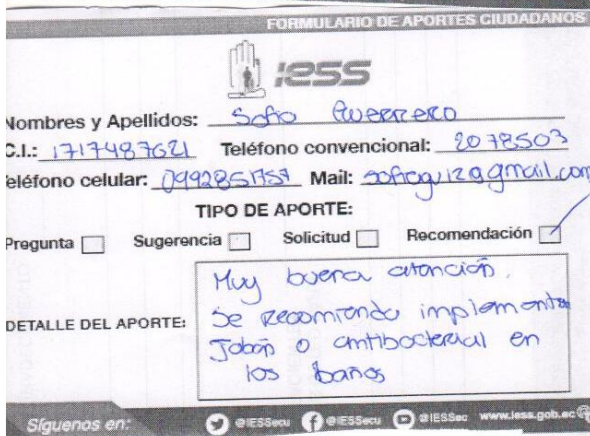 FORMULARIO DE APORTES CIUDADANOS
IESS
Nombres y Apellidos: Sofia Guerrero
C.I.: 1717487621 Teléfono convencional: 2078503
Teléfono celular: 0992851757 Mail: @gmail.com
TIPO DE APORTE:
Pregunta Sugerencia Solicitud Recomendación
DETALLE DEL APORTE:
Muy buena atención.
Se recomienda implementar
Jabón o antibacterial en
los baños
Síguenos en: @IESSecu @IESSecu @IESSec www.iess.gob.ec